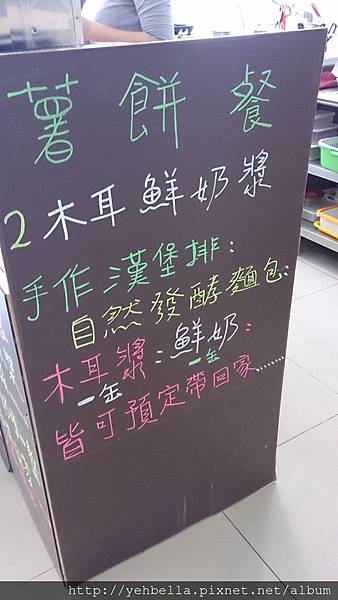 薯餅餐
2木耳鮮奶漿
手作漢堡排:
自然發酵麵包:
木耳漿:鮮奶:
一缶 一缶
皆可預定帶回家......
http://yehbella.pixnet.net/album